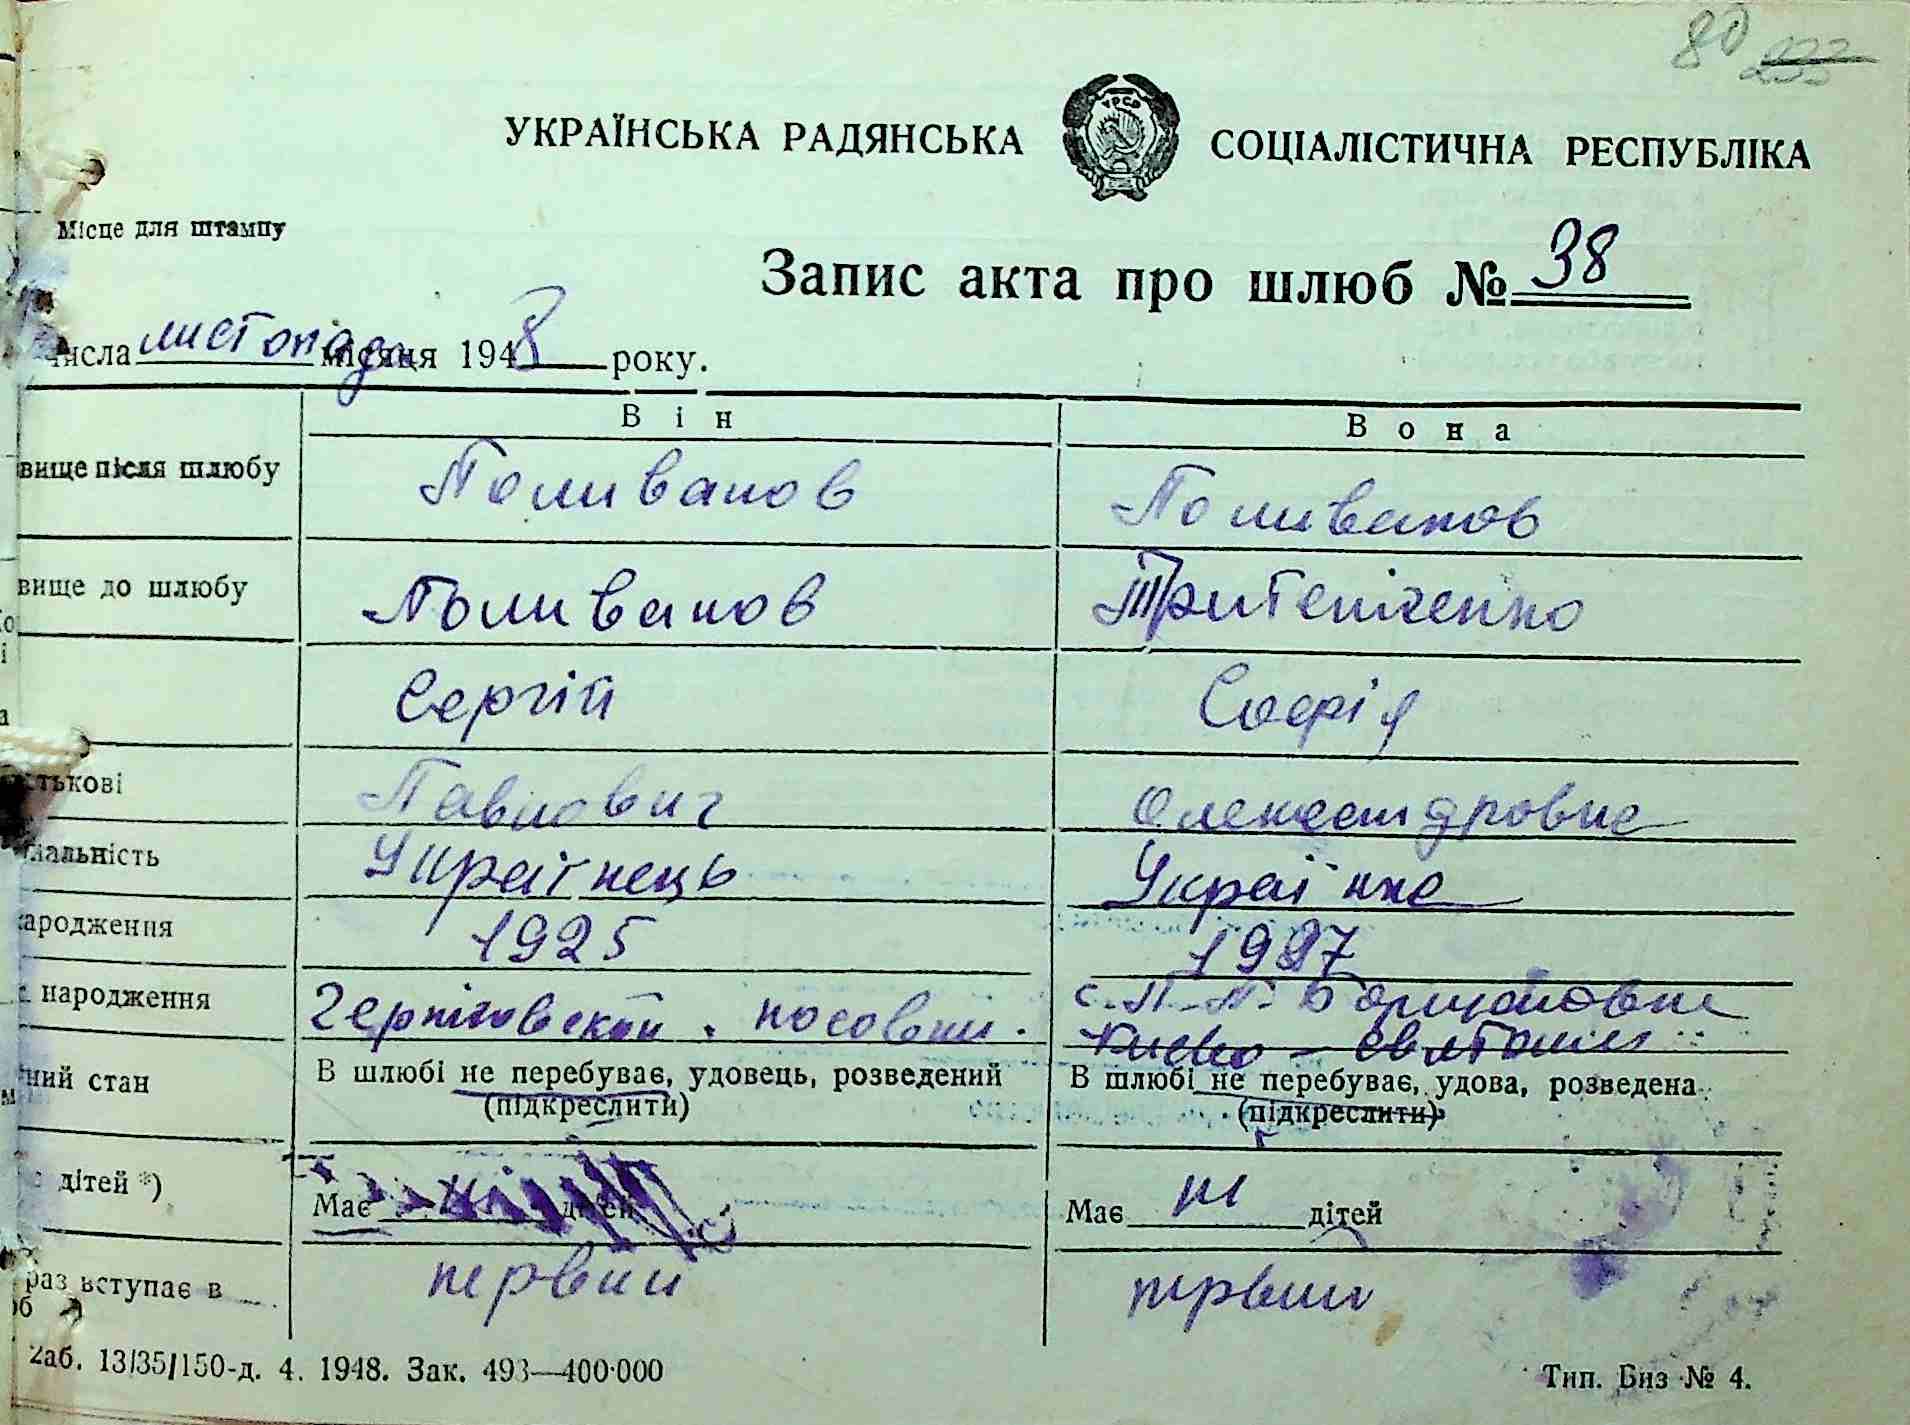 80 233
УКРАЇНСЬКА РАДЯНСЬКА СОЦІАЛІСТИЧНА РЕСПУБЛІКА
УРСР
Місце для штампу
Запис акта про шлюб № 38
числа листопада місяця 1948 року.
Він Вона
вище після шлюбу Поливанов Поливанов
вище до шлюбу Поливанов
Сергій Софія
тькові Павлович Олександровна
нальність Українець Українка
ародження 1925 1927
народження Черніговской. носовки. с. П. П. Борщаговка
Києво - Святошин
ний стан В шлюбі не перебуває, удовець, розведений В шлюбі не перебуває, удова, розведена
(підкреслити) (підкреслити)
дітей *) Має дітей Має ні дітей
раз вступає в первий первий
об
Заб. 13/35/150-д. 4. 1948. Зак. 493—400·000 Тип. Биз № 4.